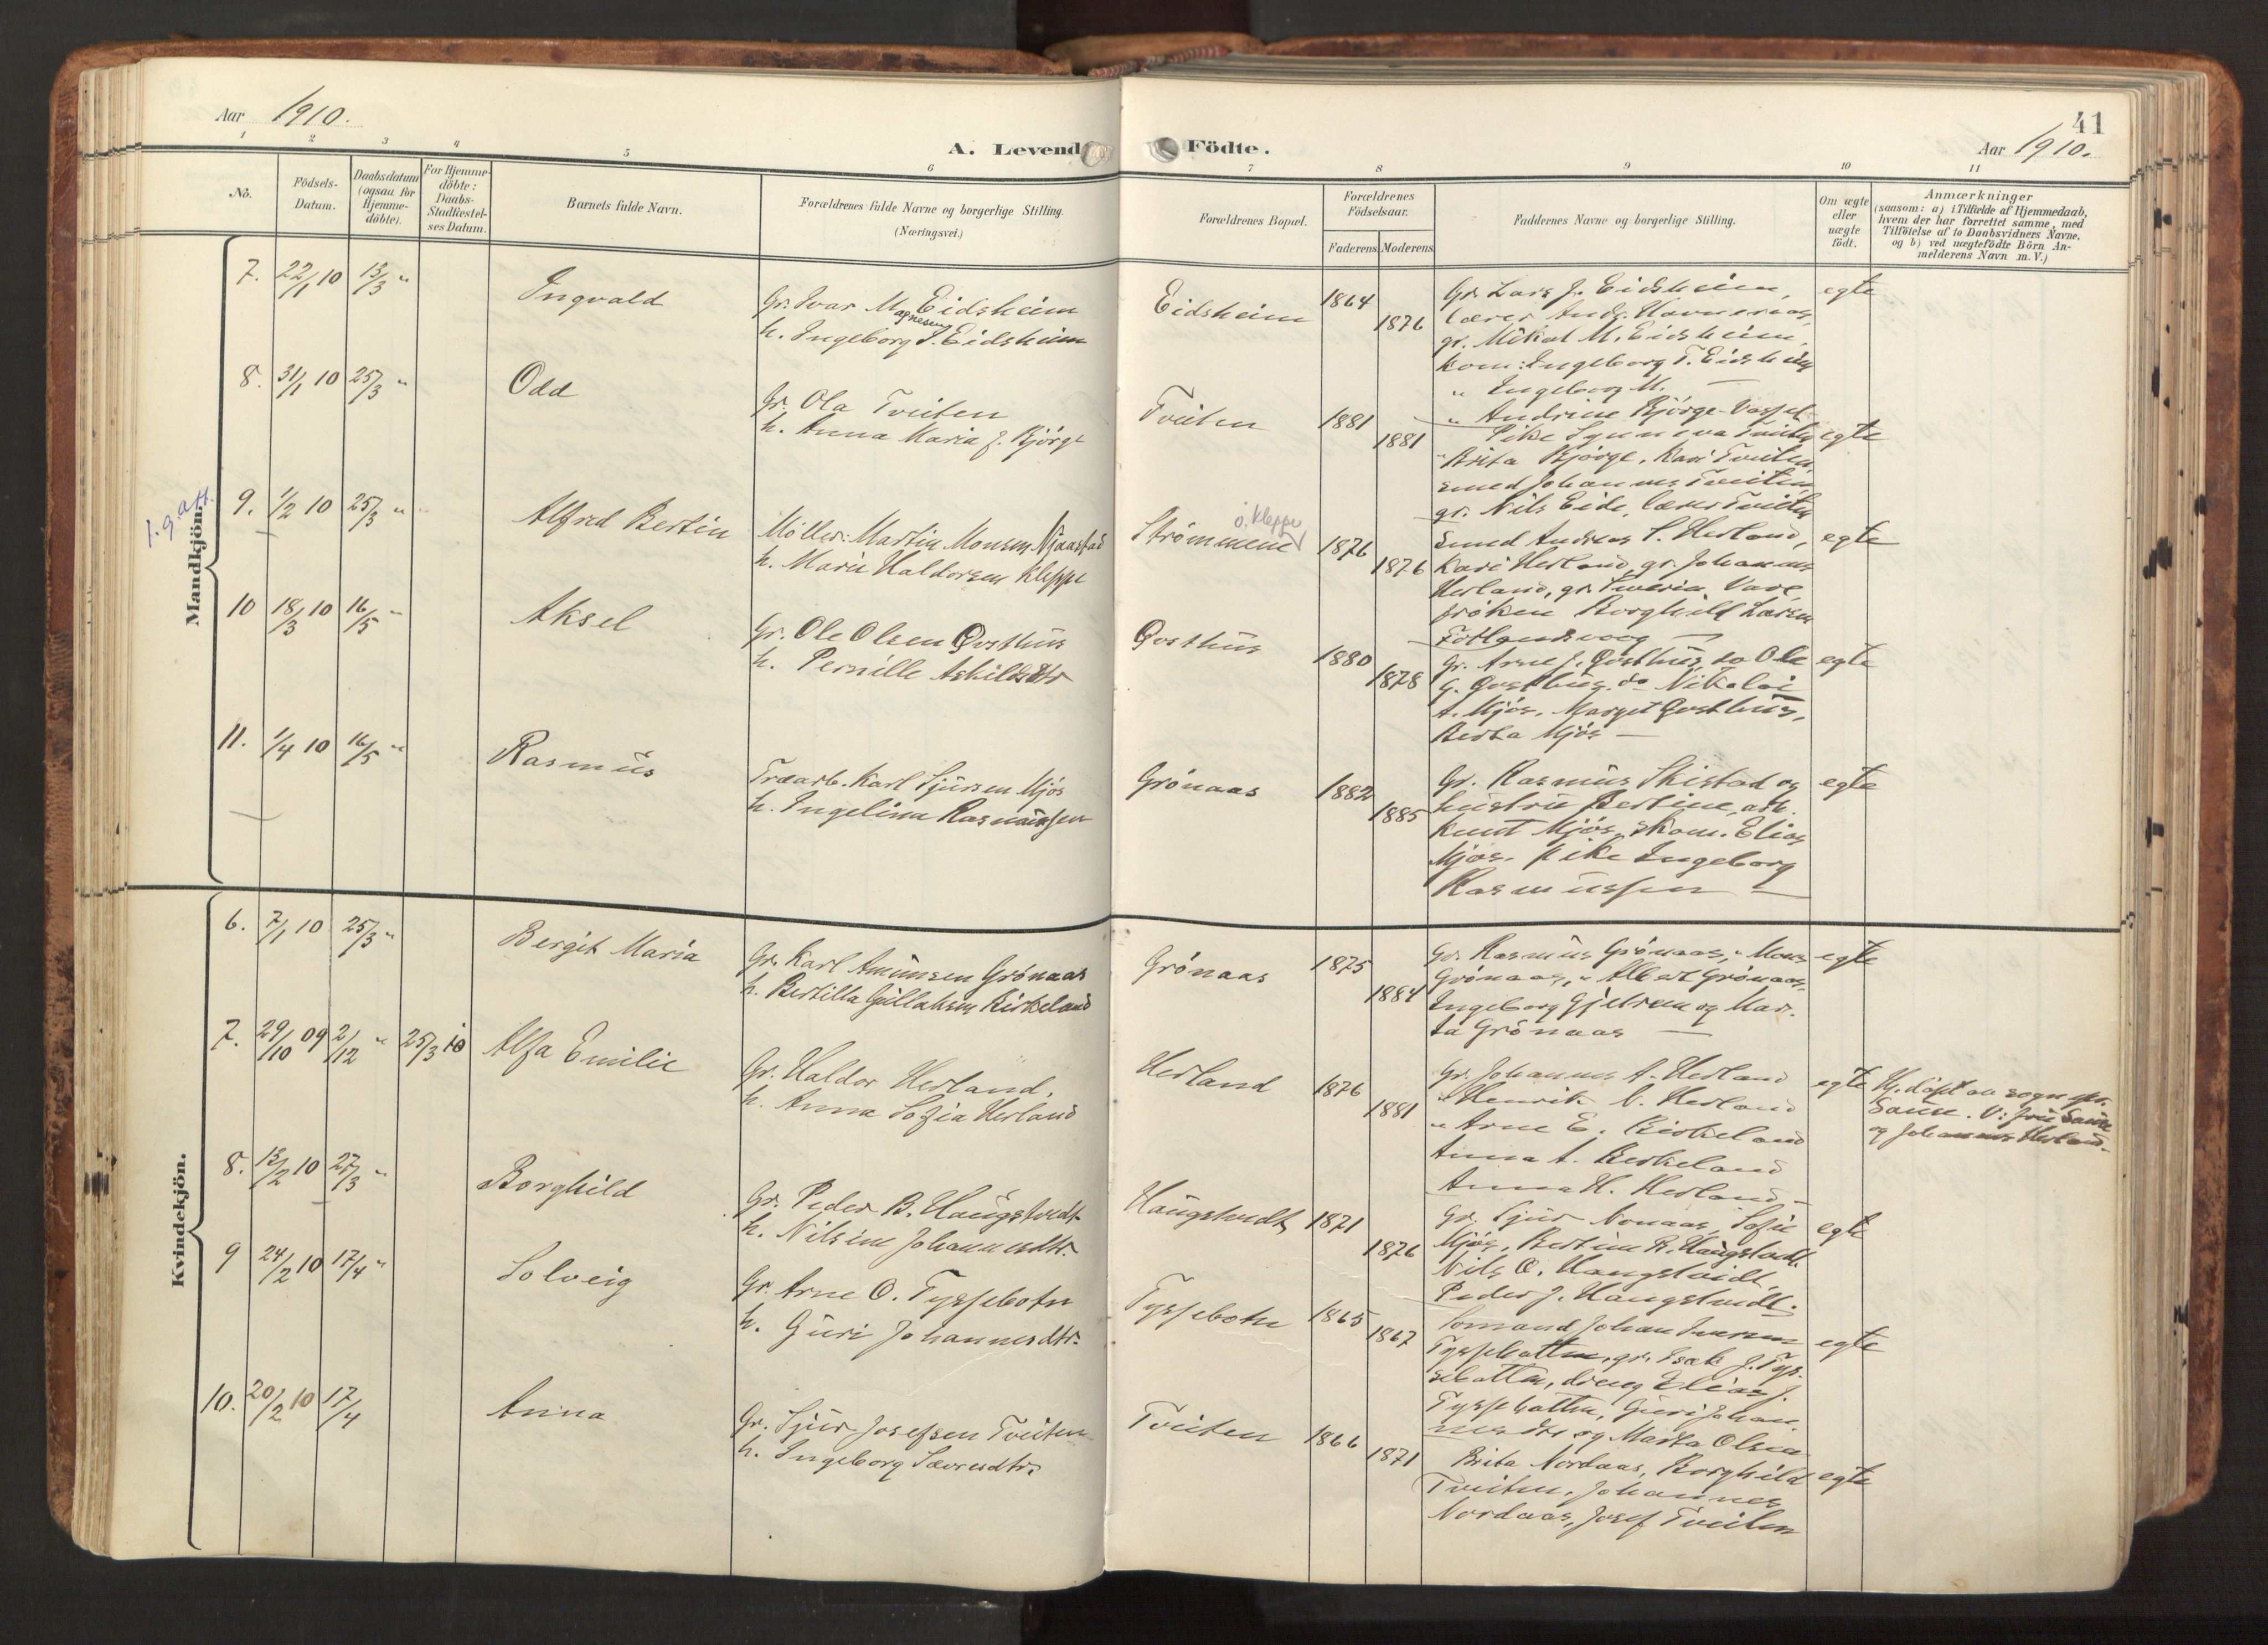 Aar 1910.
A. Levende Födte.
41
Aar 1910.
1 2 3 4 5 6 7 8 9 10 11
No.
Födsels-Datum.
Daabsdatum (ogsaa for Hjemme-döbte).
For Hjemme-döbte: Daabs-Stadfæstel-ses Datum.
Barnets fulde Navn.
Forældrenes fulde Navne og borgerlige Stilling.
(Næringsvei.)
Forældrenes Bopæl.
Forældrenes Födselsaar.
Faderens Moderens
Faddernes Navne og borgerlige Stilling.
Om ægte eller uægte födt.
Anmærkninger
(saasom: a) i Tilfælde af Hjemmedaab,
hvem der har forrettet samme, med
Tilföielse af to Daabsvidners Navne,
og b) ved uægtefödte Börn An-
melderens Navn m. V.)
Mandkjön.
7. 22/1 10 13/3 "
Ingvald
Gr. Ivar Magnesen Eidsheim
h. Ingeborg J. Eidsheim
Eidsheim
1864
1876
Gr. Lars J. Eidsheim,
lærer Andr. Havneraas,
gr. Mikal M. Eidsheim,
kom: Ingeborg T. Eidsheim
" Ingeborg M. —
" Andrine Bjørge
egte
8. 31/1 10 25/3 "
Odd
Gr. Ola Tveiten
h. Anna Maria J. Bjørge
Tveiten
1881
1881
Pike Synneva Tveiten
" Brita Bjørge, Kari Tveiten,
smed Johannes Tveiten,
gr. Nils Eide, lærer Tveiten
egte
9. 1/2 10 25/3 "
Alfred Bertin
Møller: Martin Monsen Njaastad
h. Marie Haldorsen Kleppe
Strømmen
ö. Kleppe
1876
1876
Smed Andreas S. Herland,
Kari Herland, gr. Johannes
Herland, gr. Severin Vare,
frøken Borghild Larsen
Fotlandsvaag —
egte
10 18/3 10 16/5 "
Aksel
Gr. Ole Olsen Qosthus
h. Pernille Askildsdtr
Qosthus
1880
1878
Gr. Arne J. Qosthus, do Ole
G. Qosthus, do Nikolai
A. Mjøs, Marget Qosthus,
Berta Mjøs —
egte
11. 1/4 10 16/5 "
Rasmus
Træarb. Karl Sjursen Mjøs
h. Ingelina Rasmussen
Grønaas
1882
1885
Gr. Rasmus Skistad og
hustru Bertine, arb.
Knut Mjøs, skom. Elias
Mjøs. pike Ingeborg
Rasmussen —
egte
Kvindekjön.
6. 7/1 10 25/3 "
Bergit Maria
Gr. Karl Amunsen Grønaas
h. Bertilla Gullaksen Birkeland
Grønaas
1875
1884
Gr. Rasmus Grønaas, " Mons
Grønaas, " Albert Grønaas,
Ingeborg Gjelven og Mar-
ta Grønaas —
egte
7. 29/10 09 2/12 " 25/3 10
Alfa Emilie
Gr. Haldor Herland,
h. Anna Sofia Herland
Herland
1876
1881
Gr. Johannes A. Herland
" Henrik O. Herland
" Arne E. Birkeland
Anna A. Birkeland
Anna H. Herland —
egte
H. døpt av sogn pr.
Saue. V: fru Saue
og Johannes Herland.
8. 13/2 10 27/3 "
Borghild
Gr. Peder B. Haugstvedt
h. Nilsine Johannesdtr.
Haugstvedt
1871
1876
Gr. Sjur Nonaas, Sofie
Mjøs, Bertine B. Haugstvedt
Nils O. Haugstvedt,
Peder J. Haugstvedt.
egte
9 24/2 10 17/4 "
Solveig
Gr. Arne O. Tyssebotn
h. Guri Johannesdtr.
Tyssebotn
1865
1867
Somand Johan Iversen
Tyssebotten, gr. Isak J. Tys-
sebotten, dreng Elias J.
Tyssebotten, Guri Johan-
nesdtr og Marta Olsen
egte
10. 20/2 10 17/4
Anna
Gr. Sjur Josefsen Tveiten
h. Ingeborg Sævresdtr.
Tveiten
1866
1871
Brita Nordaas, Borghild
Tveiten, Johannes
Nordaas, Josef Tveiten
egte